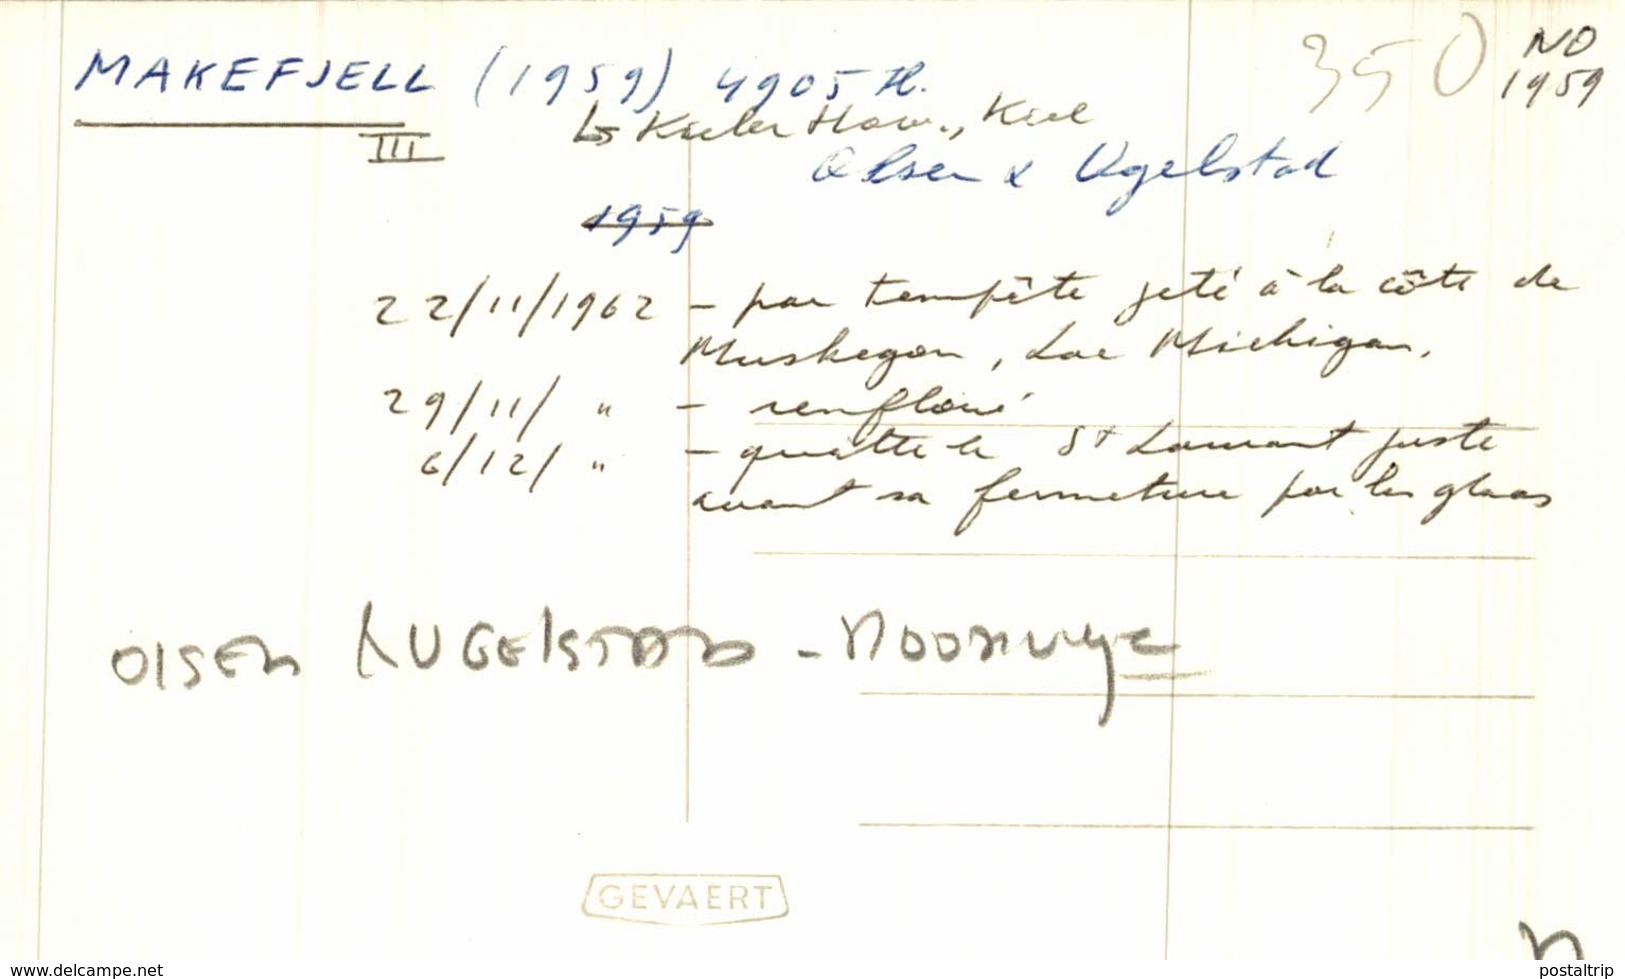 MAKEFJELL (1959) 4905 tl. 350 NO
1959
III
↳ Kieler How., Kiel
Olsen & Ugelstad
1959
22/11/1962 - par tempête jeté à la côte de
Muskegon, Lac Michigan.
29/11/ " - renfloué
6/12/ " - quitte le St Laurant juste
avant sa fermeture par les glaces
OLSEN & UGELSTAD - NOORWEGE
GEVAERT
n
www.delcampe.net
postaltrip